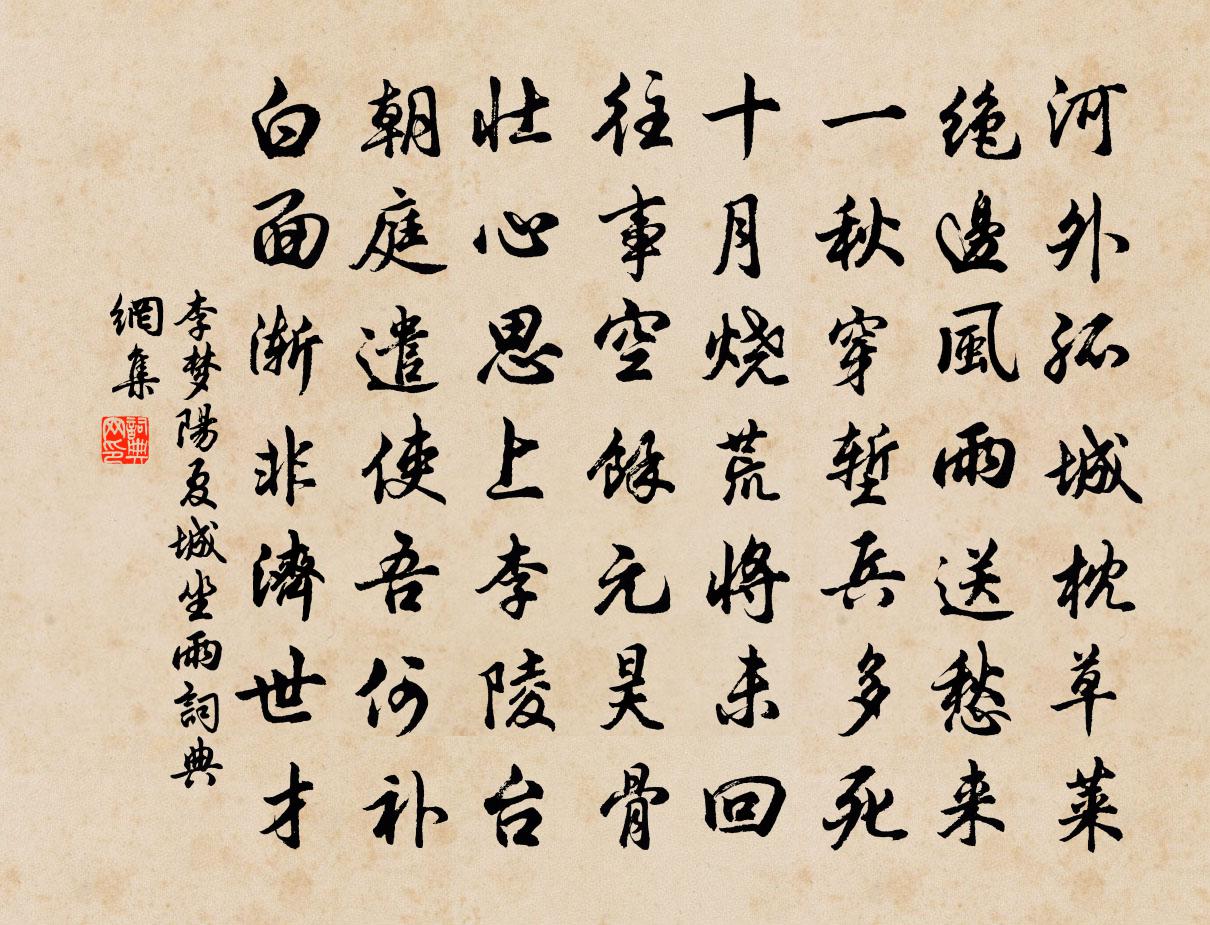 河外孤城枕草莱
绝邊風雨送愁来
一秋穿塹兵多死
十月烧荒将未回
往事空餘元昊骨
壮心思上李陵台
朝庭遣使吾何补
白面渐非濟世才
李梦陽夏城坐雨詞典
網集
詞典
网印